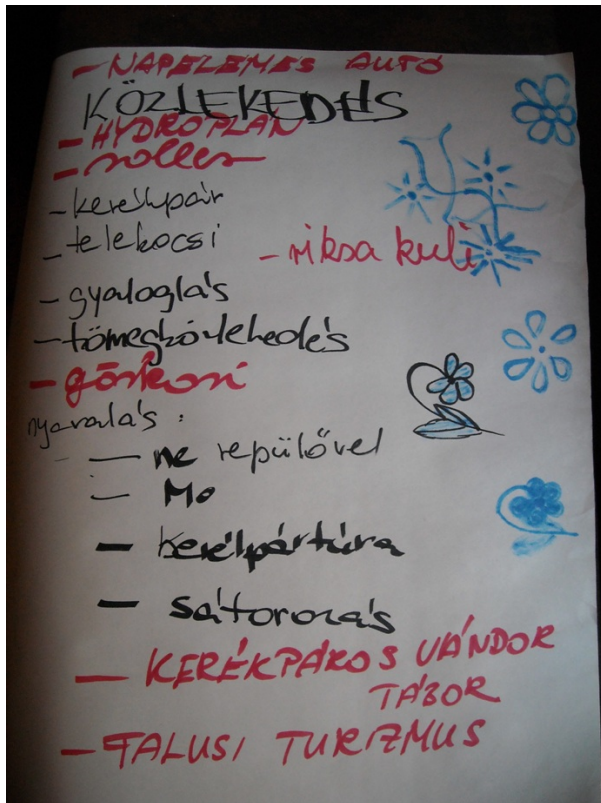 - NAPELEMES AUTÓ
KÖZLEKEDÉS
- HYDROPLÁN
- roller
- kerékpár
- telekocsi
- riksa kuli
- gyaloglás
- tömegközlekedés
- görkori
nyaralás :
- ne repülővel
- Mo
- kerékpártúra
- sátorozás
- KERÉKPÁROS VÁNDOR
TÁBOR
- FALUSI TURIZMUS